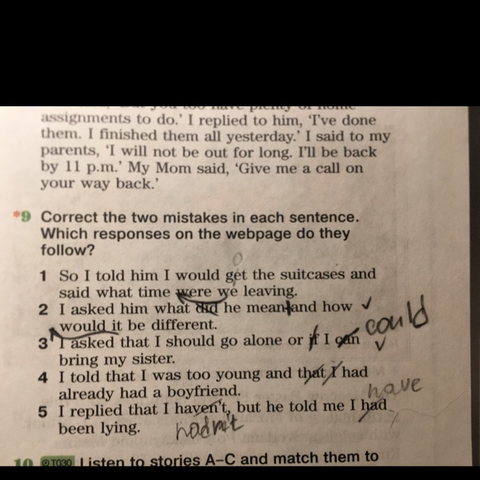 assignments to do.' I replied to him, 'I've done
them. I finished them all yesterday.' I said to my
parents, 'I will not be out for long. I'll be back
by 11 p.m.' My Mom said, 'Give me a call on
your way back.'
*9 Correct the two mistakes in each sentence.
Which responses on the webpage do they
follow?
1 So I told him I would get the suitcases and
said what time were we leaving.
2 I asked him what did he mean and how
would it be different.
could
3 I asked that I should go alone or if I can
bring my sister.
4 I told that I was too young and that I had
already had a boyfriend.
have
5 I replied that I haven't, but he told me I had
been lying.
hadn't
10 T030 Listen to stories A–C and match them to